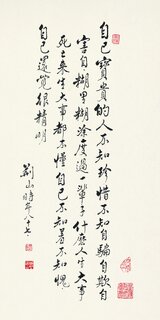 自己寶貴的人不知珍惜不自騙自欺自
害自糊里糊塗度過一輩子什麼人生大事
死去來生大事都不懂自己不知羞不知愧
自己還覺很精明